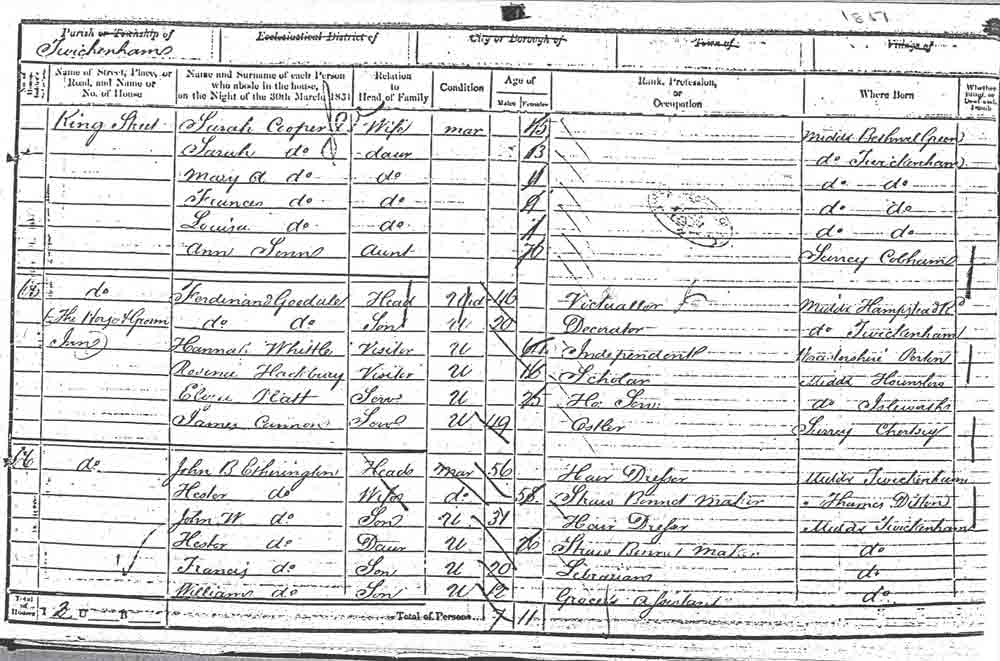 1851
Parish or Township of Ecclesiastical District of City or Borough of Town of Village of
Twickenham
Name of Street, Place, or Road, and Name or No. of House Name and Surname of each Person who abode in the house, on the Night of the 30th March, 1851 Relation to Head of Family Condition Age of Males Females Rank, Profession, or Occupation Where Born Whether Blind, or Deaf and Dumb
King Street Sarah Cooper Wife mar 45 Middx Bethnal Green
Sarah do daur 13 do Twickenham
Mary A do do 11 do do
Frances do do do do
Louisa do do do do
Ann Aunt 76 Surrey Cobham
do Ferdinand Goodale Head 46 Victualler Middx Hampstead
The Horse & Groom do do Son U 20 Decorator do Twickenham
Inn Hannah Whittle Visitor U Independent
Hackbury Visitor U 16 Scholar Middx Hounslow
Platt Serv U 25 Ho Serv do Isleworth
James Cannon Serv U 49 Ostler Surrey Chertsey
do John B Etherington Head Mar 56 Hair Dresser Middx Twickenham
Hester do Wife do 58 Straw Bonnet Maker Thames Ditton
John W do Son U 31 Hair Dresser Middx Twickenham
Hester do Daur U 26 Straw Bonnet Maker do
Francis do Son U 20 Librarian do
William do Son U 12 Grocer's Assistant do
Total of Houses I 2 U B Total of Persons 7 11